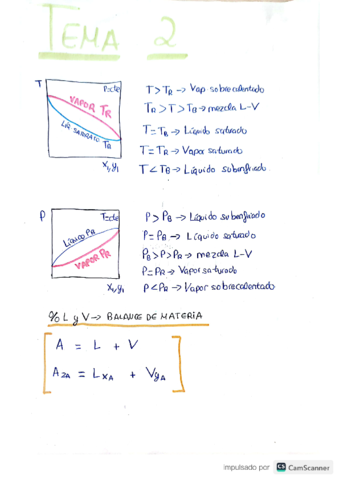 TEMA 2
T
P=cte
VAPOR TR
LIQ SATURADO TB
x1,y1
T > TR → Vap sobrecalentado
TR > T > TB → mezcla L-V
T = TB → Líquido saturado
T = TR → Vapor saturado
T < TB → Líquido subenfriado
P
T=cte
LÍQUIDO PB
VAPOR PR
x1,y1
P > PB → Líquido subenfriado
P = PB → Líquido saturado
PB > P > PR → mezcla L-V
P = PR → Vapor saturado
P < PR → Vapor sobrecalentado
% L y V → BALANCE DE MATERIA
A = L + V
AzA = LxA + VyA
impulsado por CS CamScanner